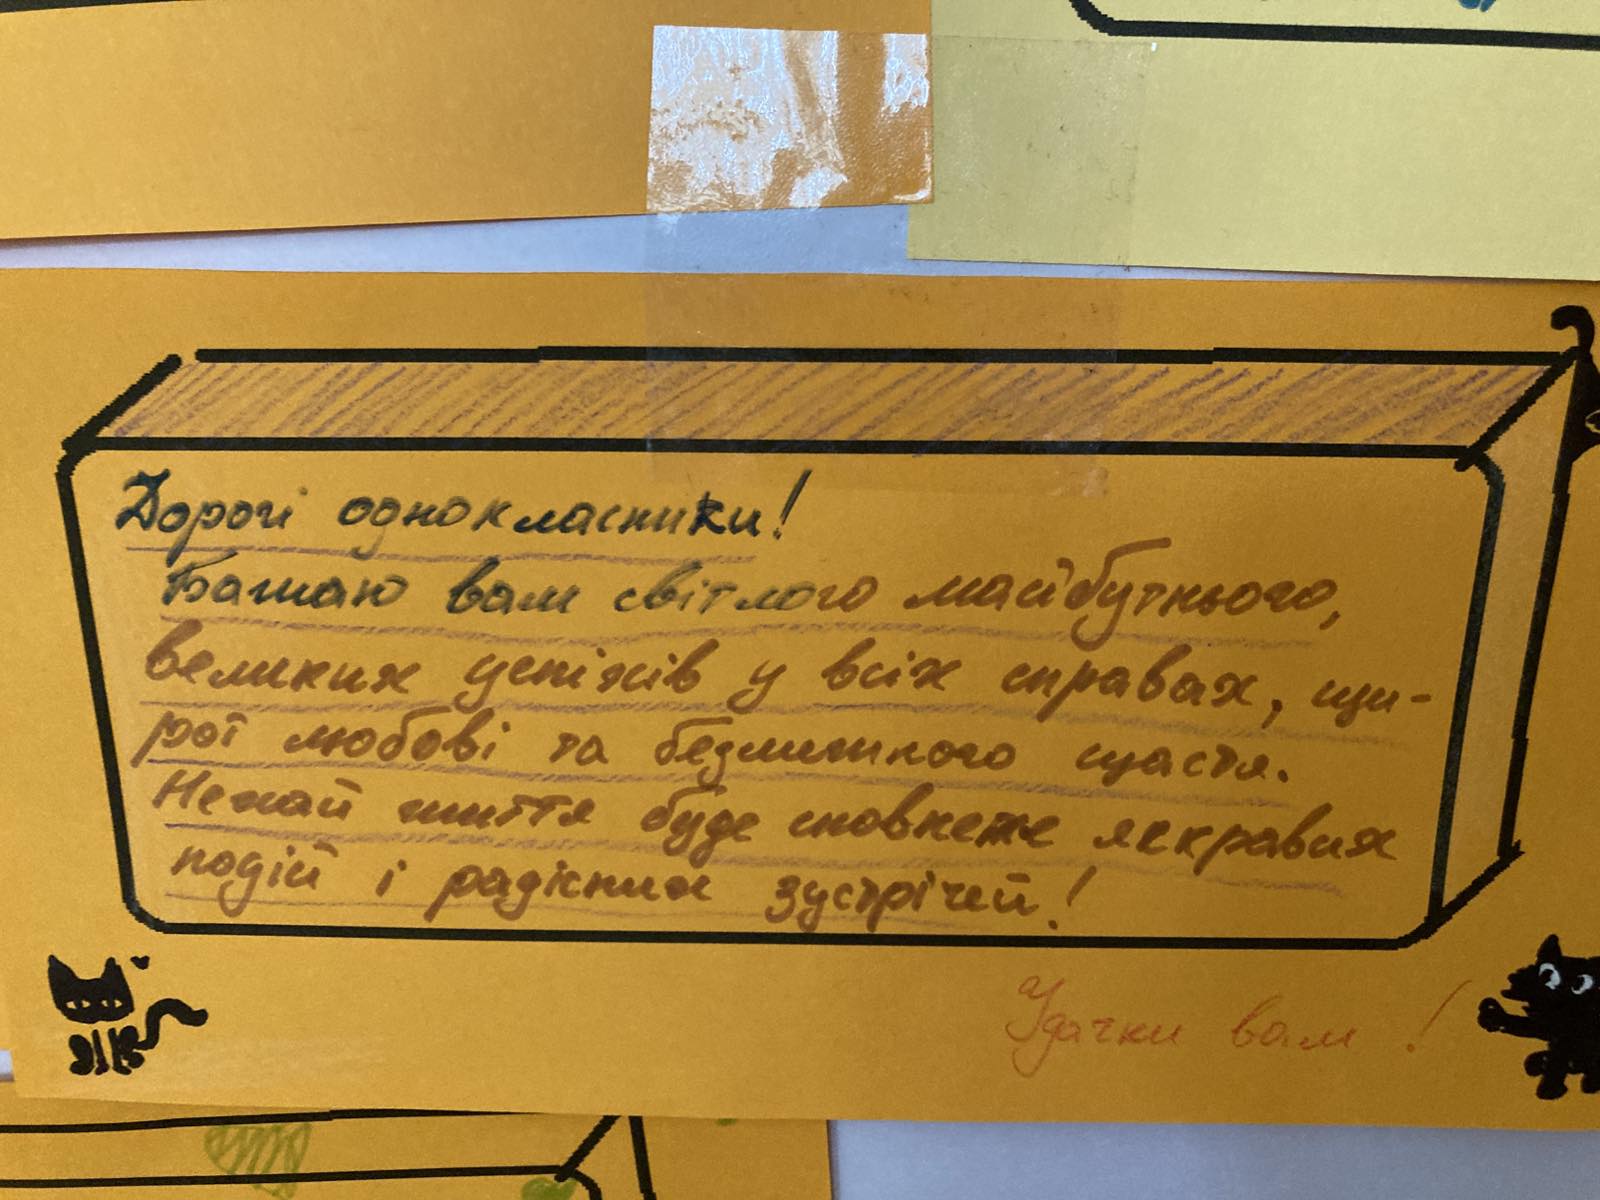 Дорогі однокласники!
Бажаю вам світлого майбутнього,
великих успіхів у всіх справах, щи-
рої любові та безлижного щастя.
Нехай життя буде сповнене яскравих
подій і радісних зустрічей!
Удачки вам!